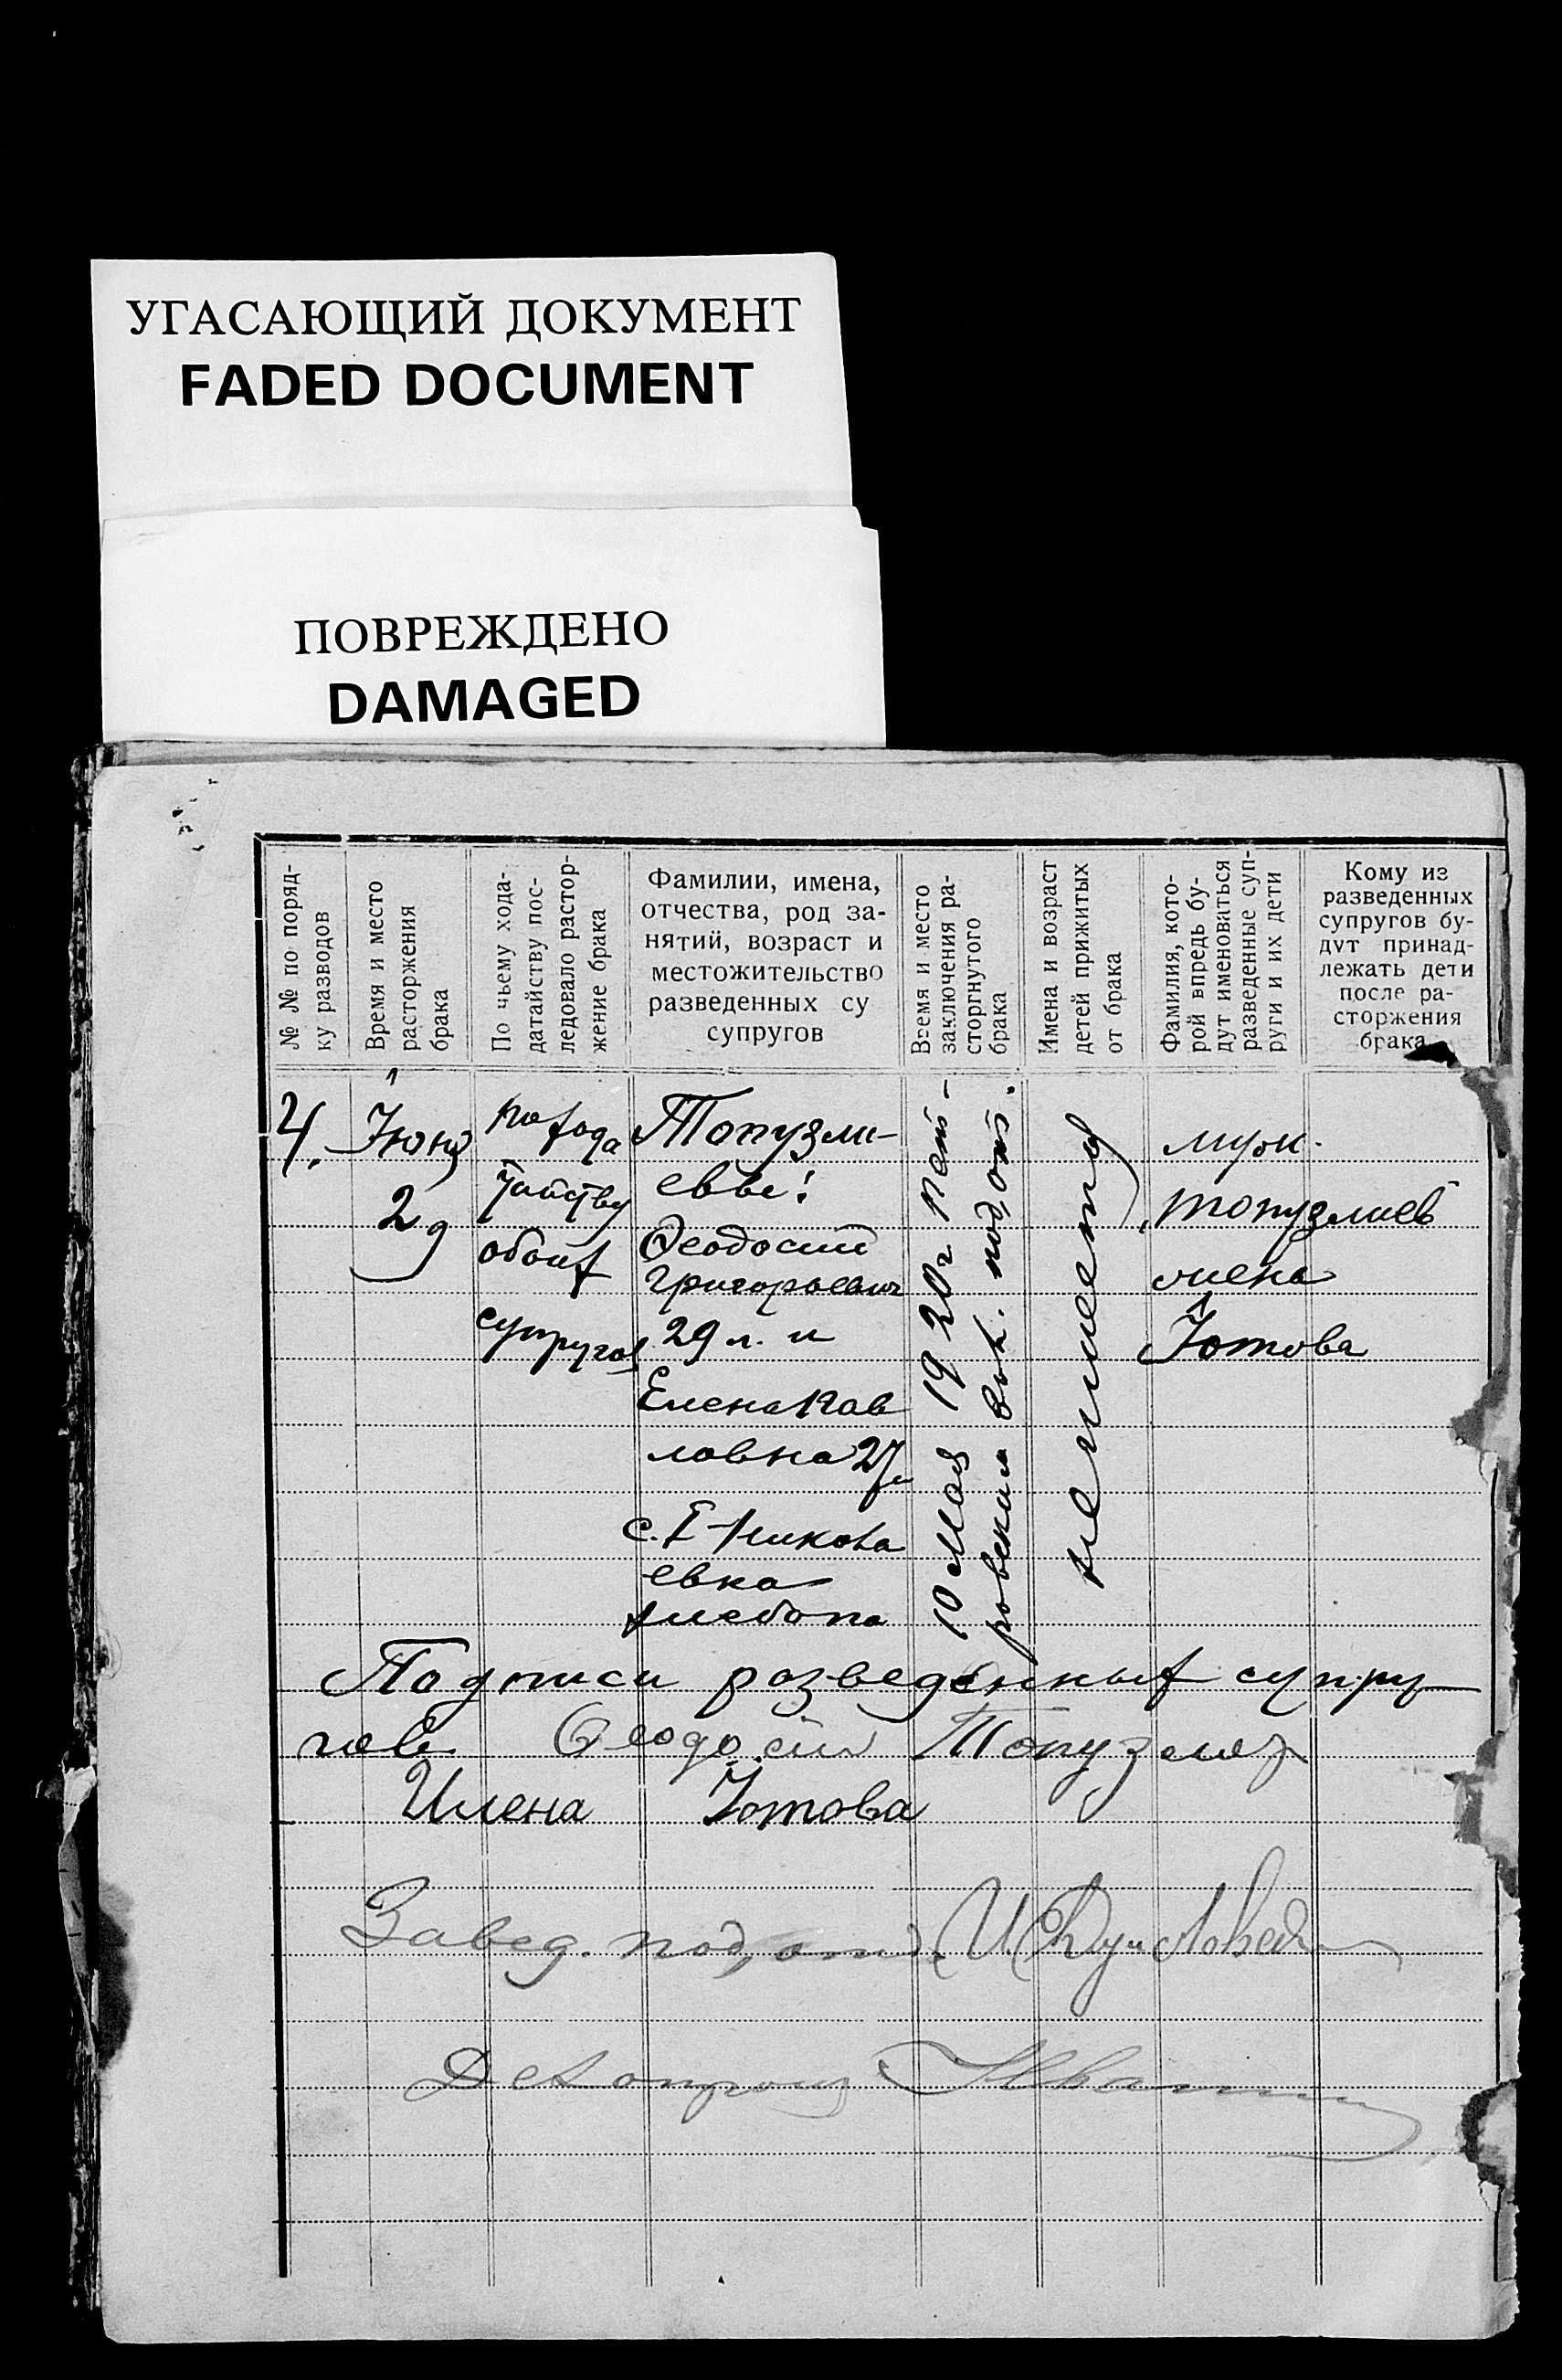 УГАСАЮЩИЙ ДОКУМЕНТ
FADED DOCUMENT
ПОВРЕЖДЕНО
DAMAGED
№ № по поряд-
ку разводов
Время и место
расторжения
брака
По чьему хода-
датайству пос-
ледовало растор-
жение брака
Фамилии, имена,
отчества, род за-
нятий, возраст и
местожительство
разведенных су
супругов
Время и место
заключения ра-
сторгнутого
брака
Имена и возраст
детей прижитых
от брака
Фамилия, кото-
рой впредь бу-
дут именоваться
разведенные суп-
руги и их дети
Кому из
разведенных
супругов бу-
дут принад-
лежать дети
после ра-
сторжения
брака
4.
Июня
2 д
по хода
тайству
обоих
супругов
Топузли-
евы:
Феодосий
Григорьевич
29 л. и
Елена Пав
ловна 27 л
с. I-Никола
евка
хлебопа
10 Мая 1920 г. Пет-
ровским вол. под, отд.
не имеется
муж
Топузлиев
жена
Іотова
Подписи разведенных супру
гов Феодосий
Илена Іотова
Завед. под, отд.
Делопроиз